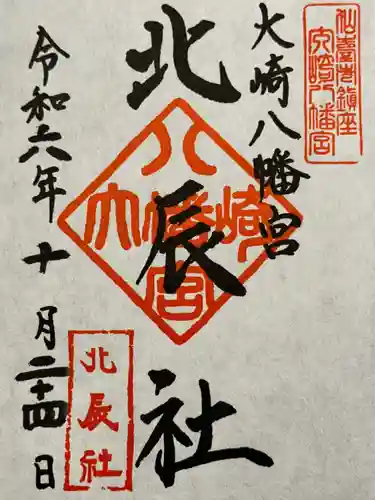 仙臺市鎮座
大崎八幡宮
大崎八幡宮
北辰社
八
大幡崎
宮
北辰社
令和六年十月二十四日